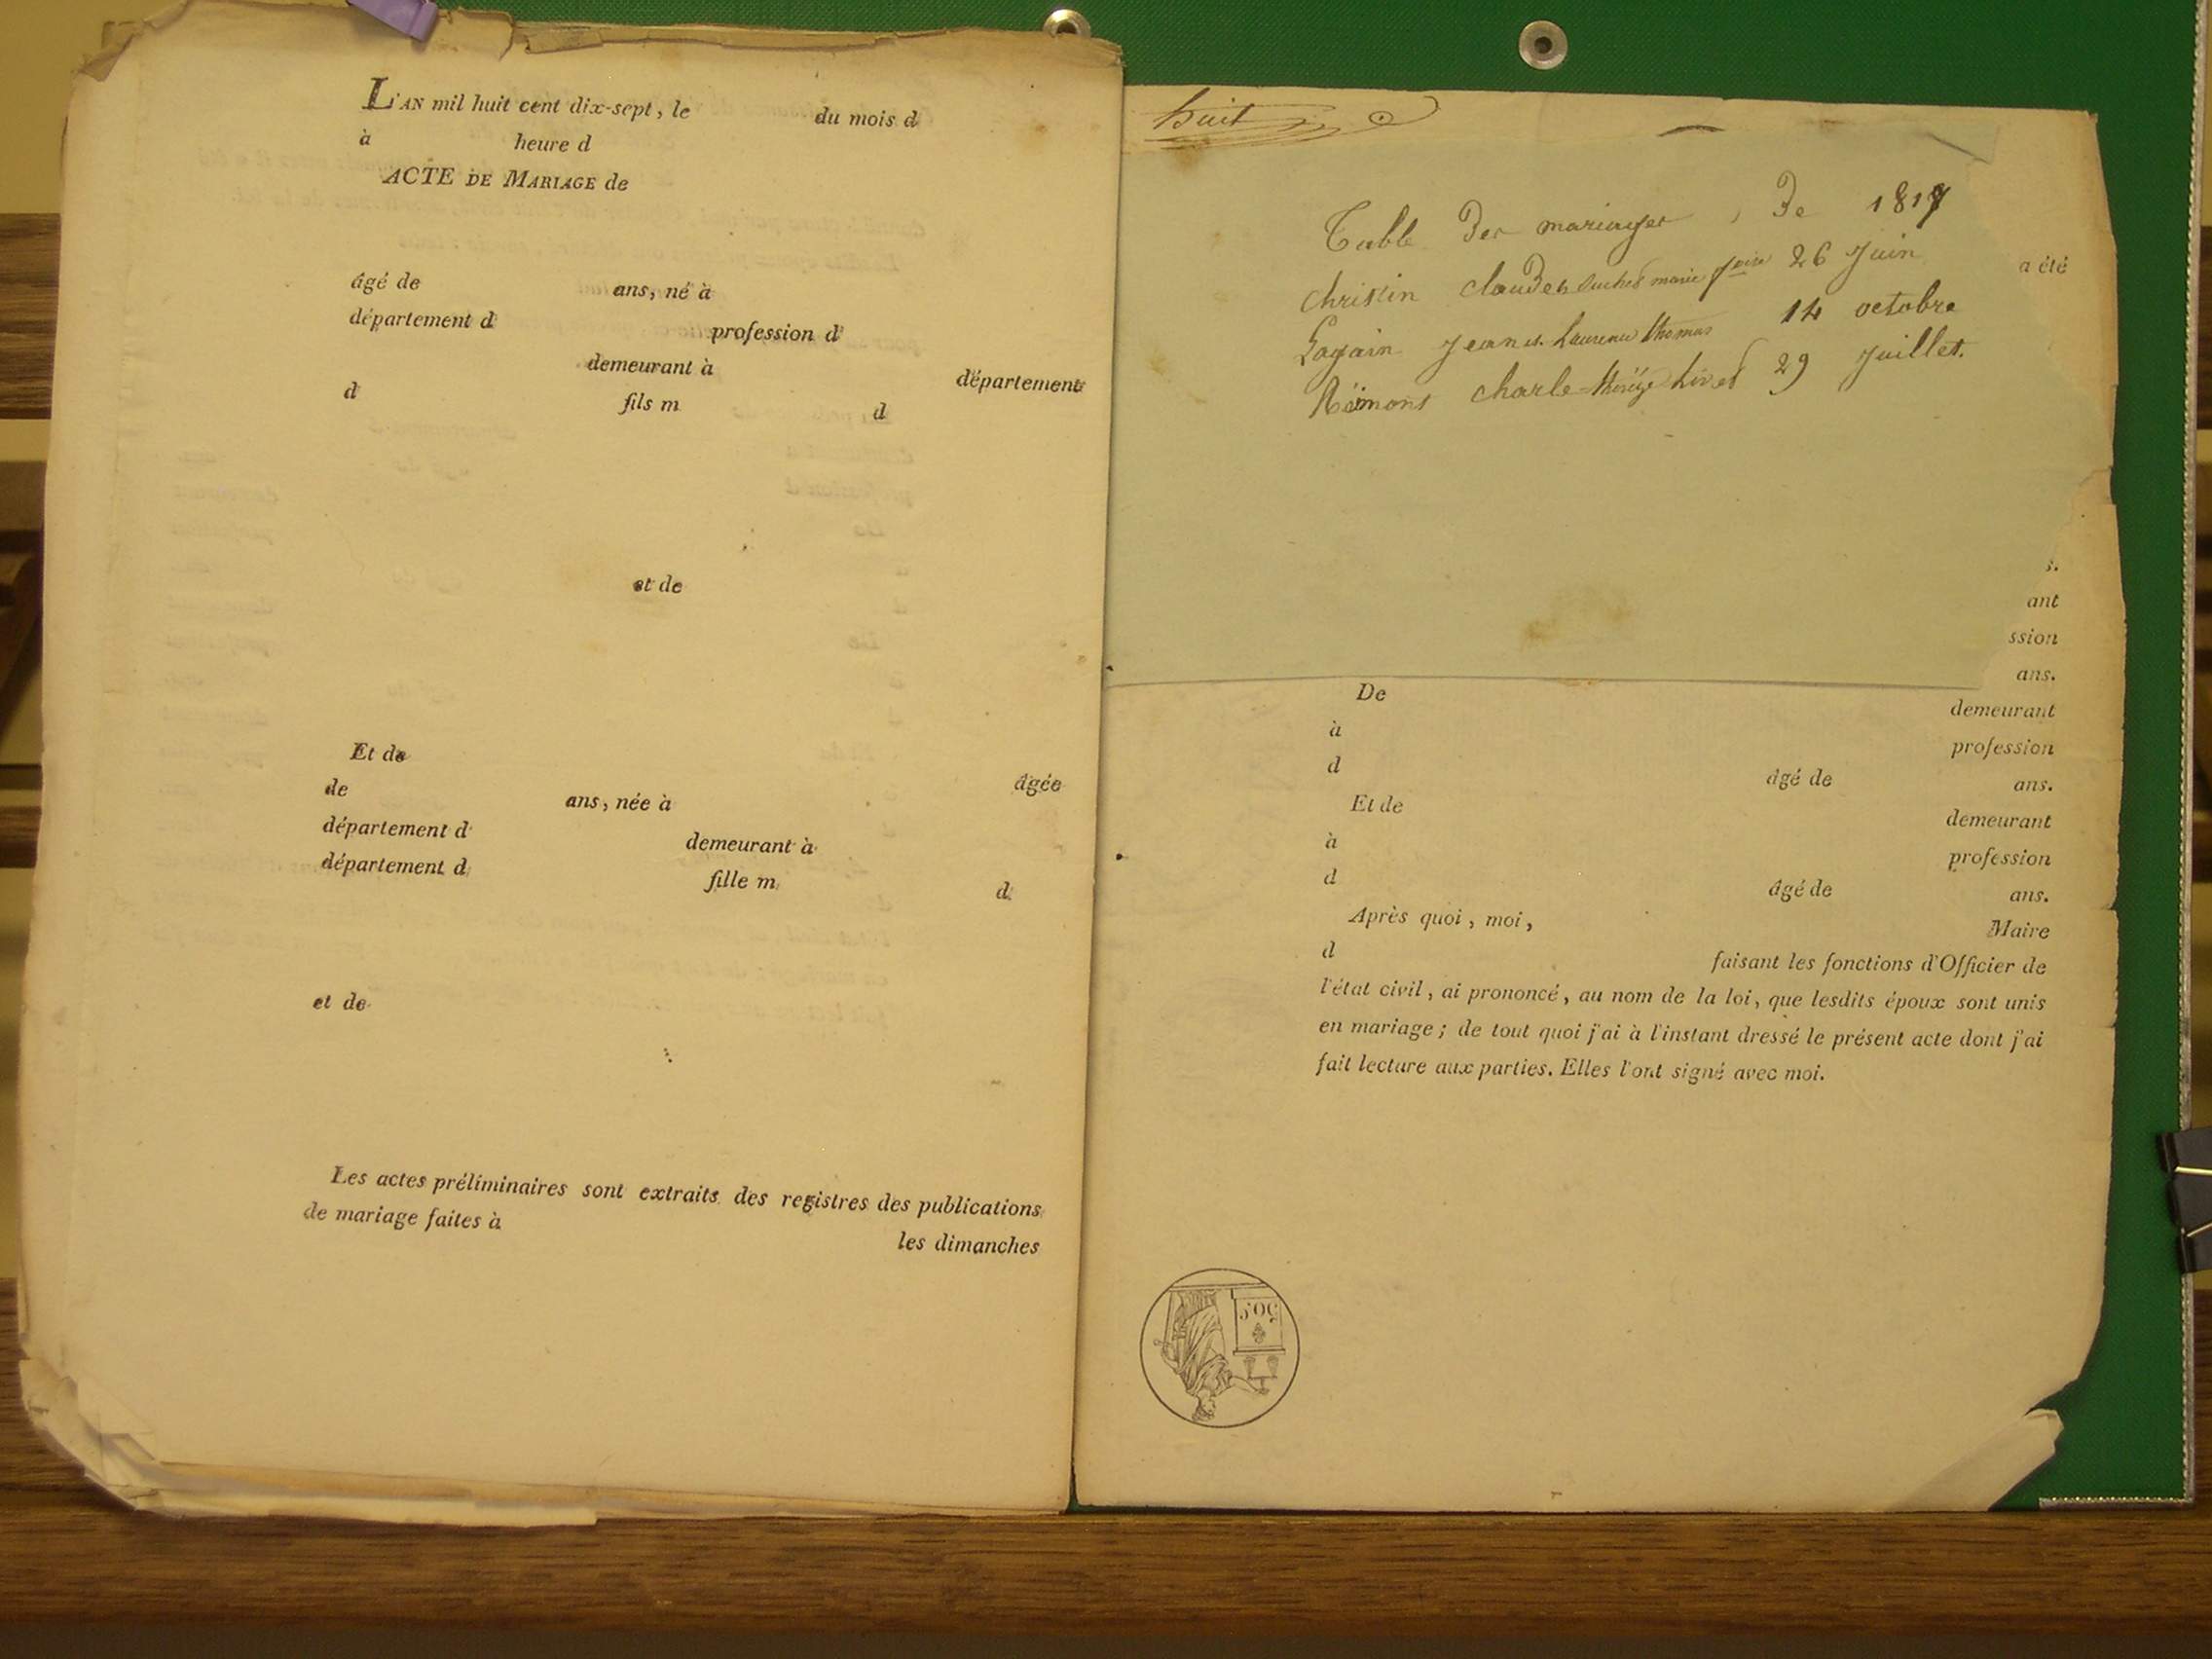 L'AN mil huit cent dix-sept, le du mois d
à heure d
ACTE DE MARIAGE de
âgé de ans, né à
département d profession d
demeurant à département
d fils m d
et de
Et de âgée
de ans, née à
département d demeurant à
département d fille m d
et de
Les actes préliminaires sont extraits des registres des publications
de mariage faites à les dimanches
huit
Table Des mariages De 1817
christin claude marie 26 Juin
Jean Laurence thomas 14 octobre
Rémons charle 29 Juillet.
a été
s.
ant
ssion
ans.
De demeurant
à profession
d âgé de ans.
Et de demeurant
à profession
d âgé de ans.
Après quoi, moi, Maire
d faisant les fonctions d'Officier de
l'état civil, ai prononcé, au nom de la loi, que lesdits époux sont unis
en mariage; de tout quoi j'ai à l'instant dressé le présent acte dont j'ai
fait lecture aux parties. Elles l'ont signé avec moi.
50c